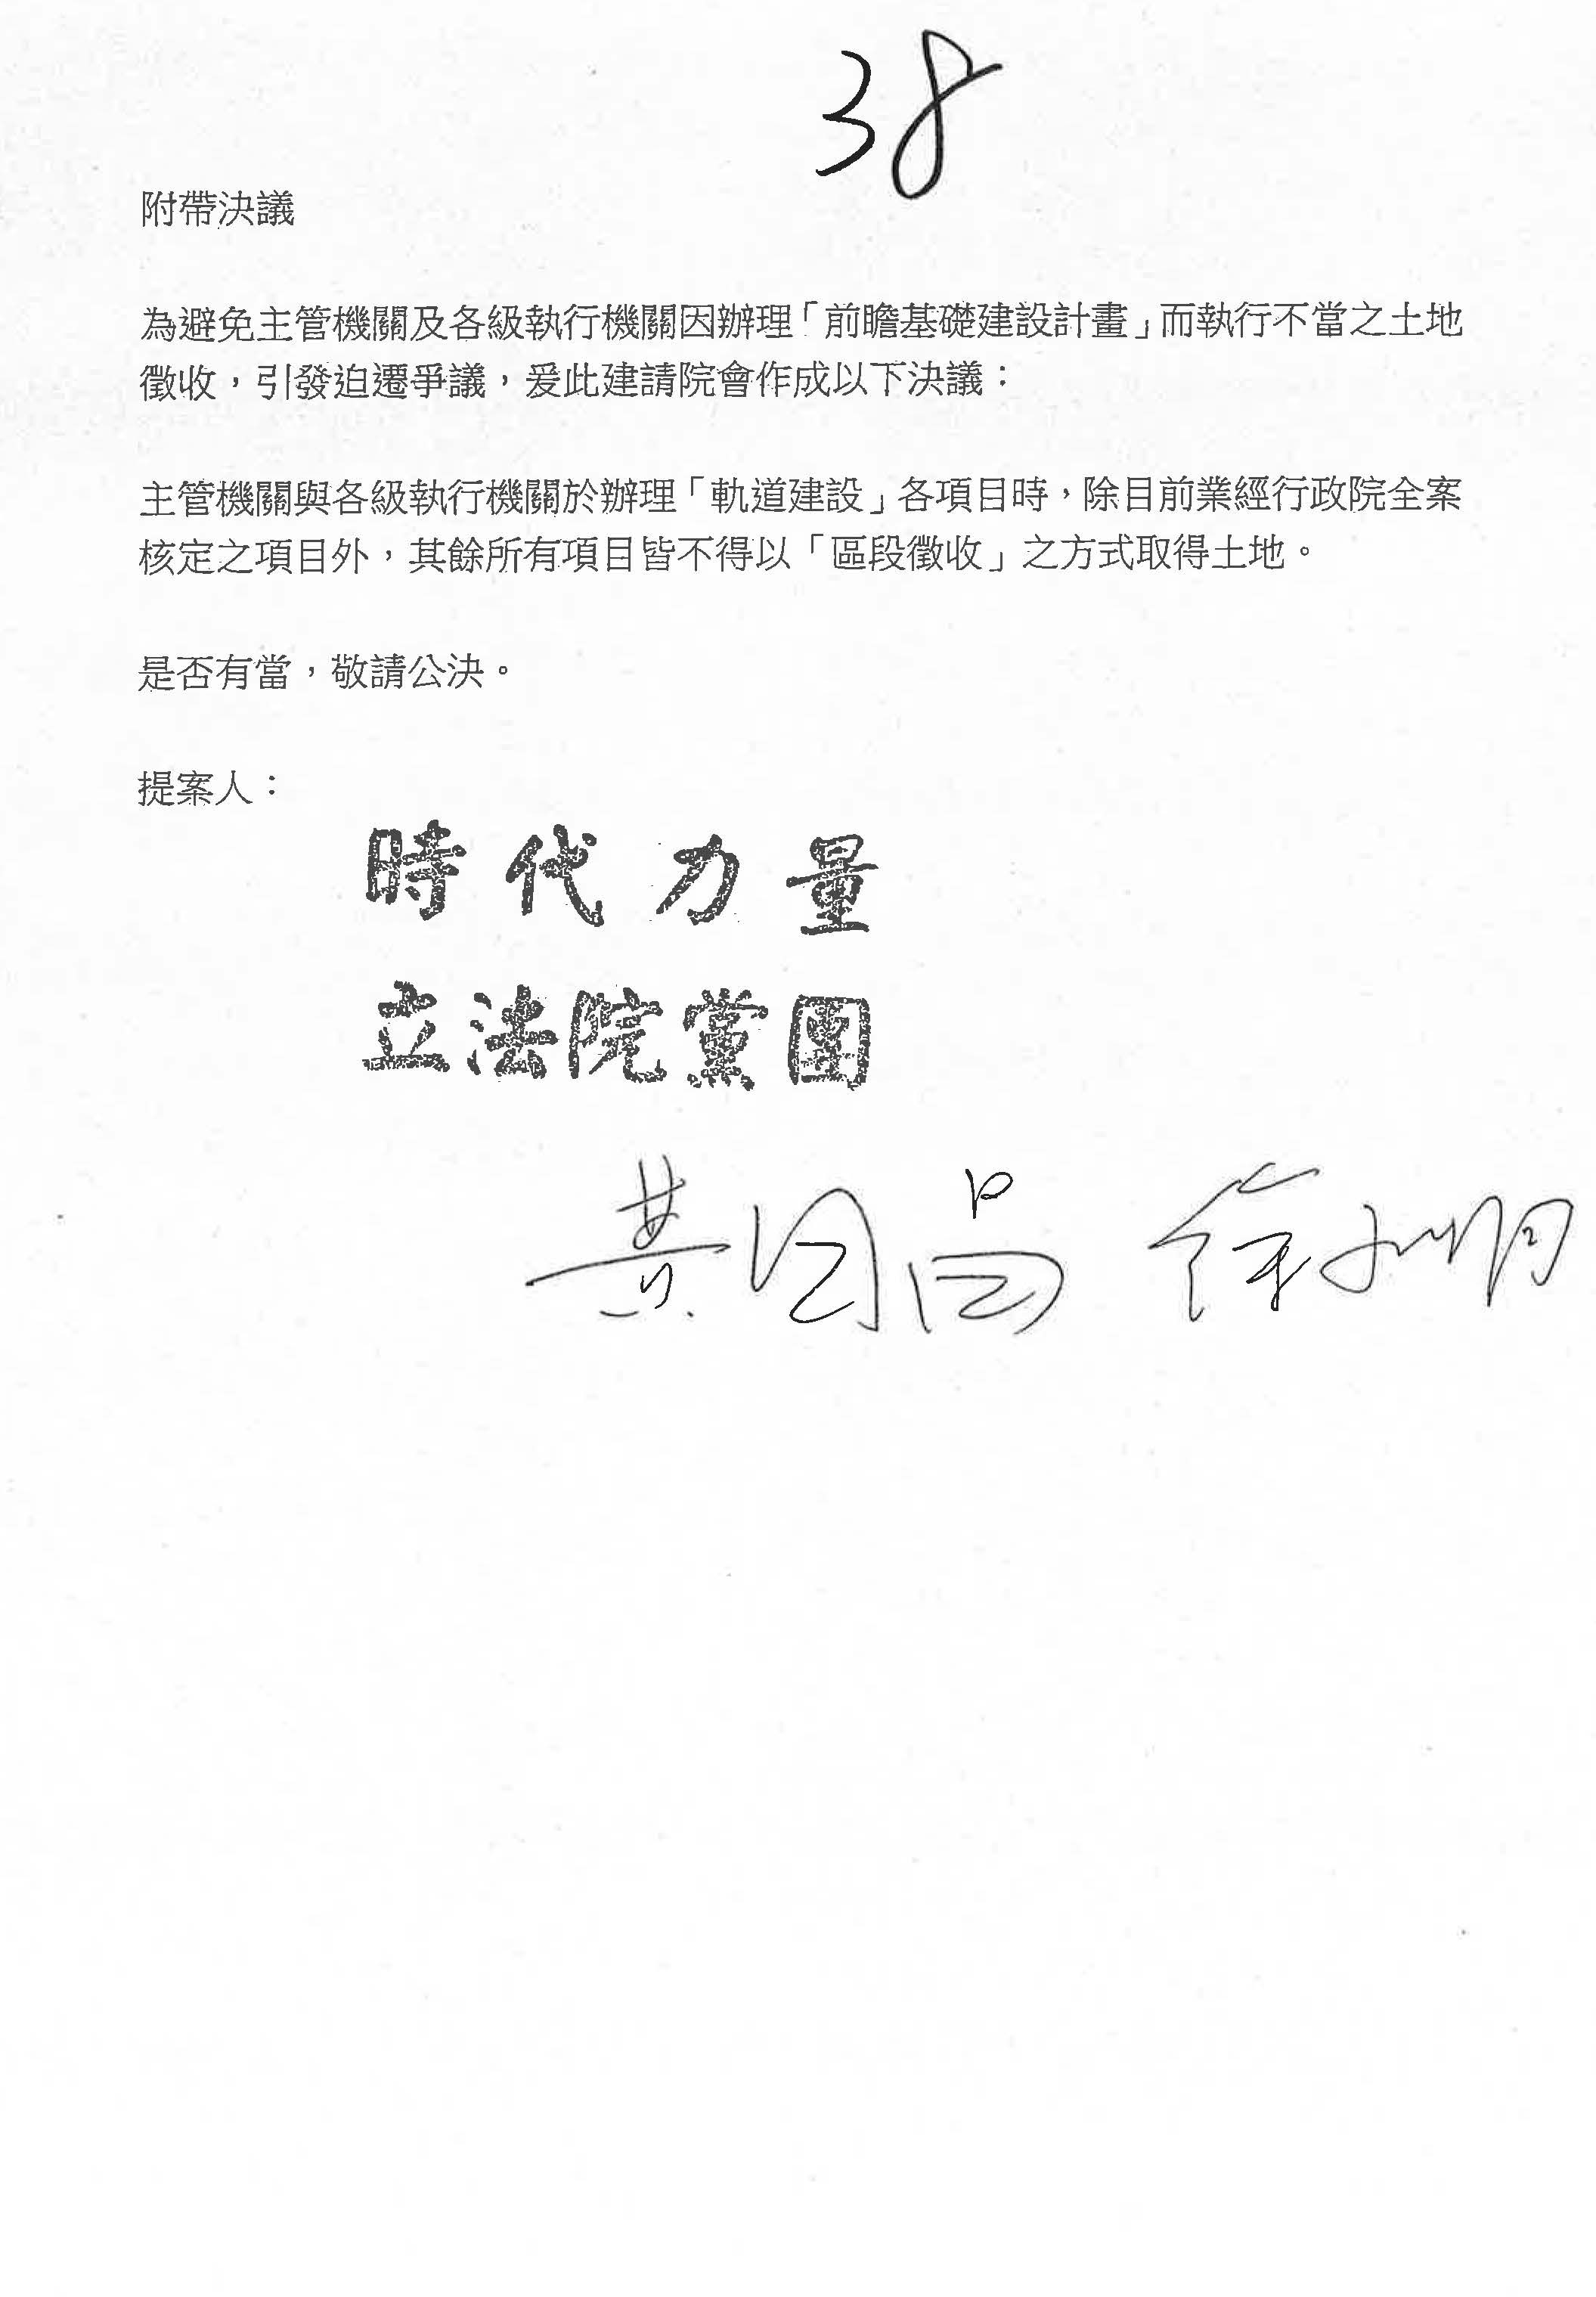 38
附帶決議
為避免主管機關及各級執行機關因辦理「前瞻基礎建設計畫」而執行不當之土地
徵收，引發迫遷爭議，爰此建請院會作成以下決議：
主管機關與各級執行機關於辦理「軌道建設」各項目時，除目前業經行政院全案
核定之項目外，其餘所有項目皆不得以「區段徵收」之方式取得土地。
是否有當，敬請公決。
提案人：
時代力量
立法院黨團
黃國昌 徐永明